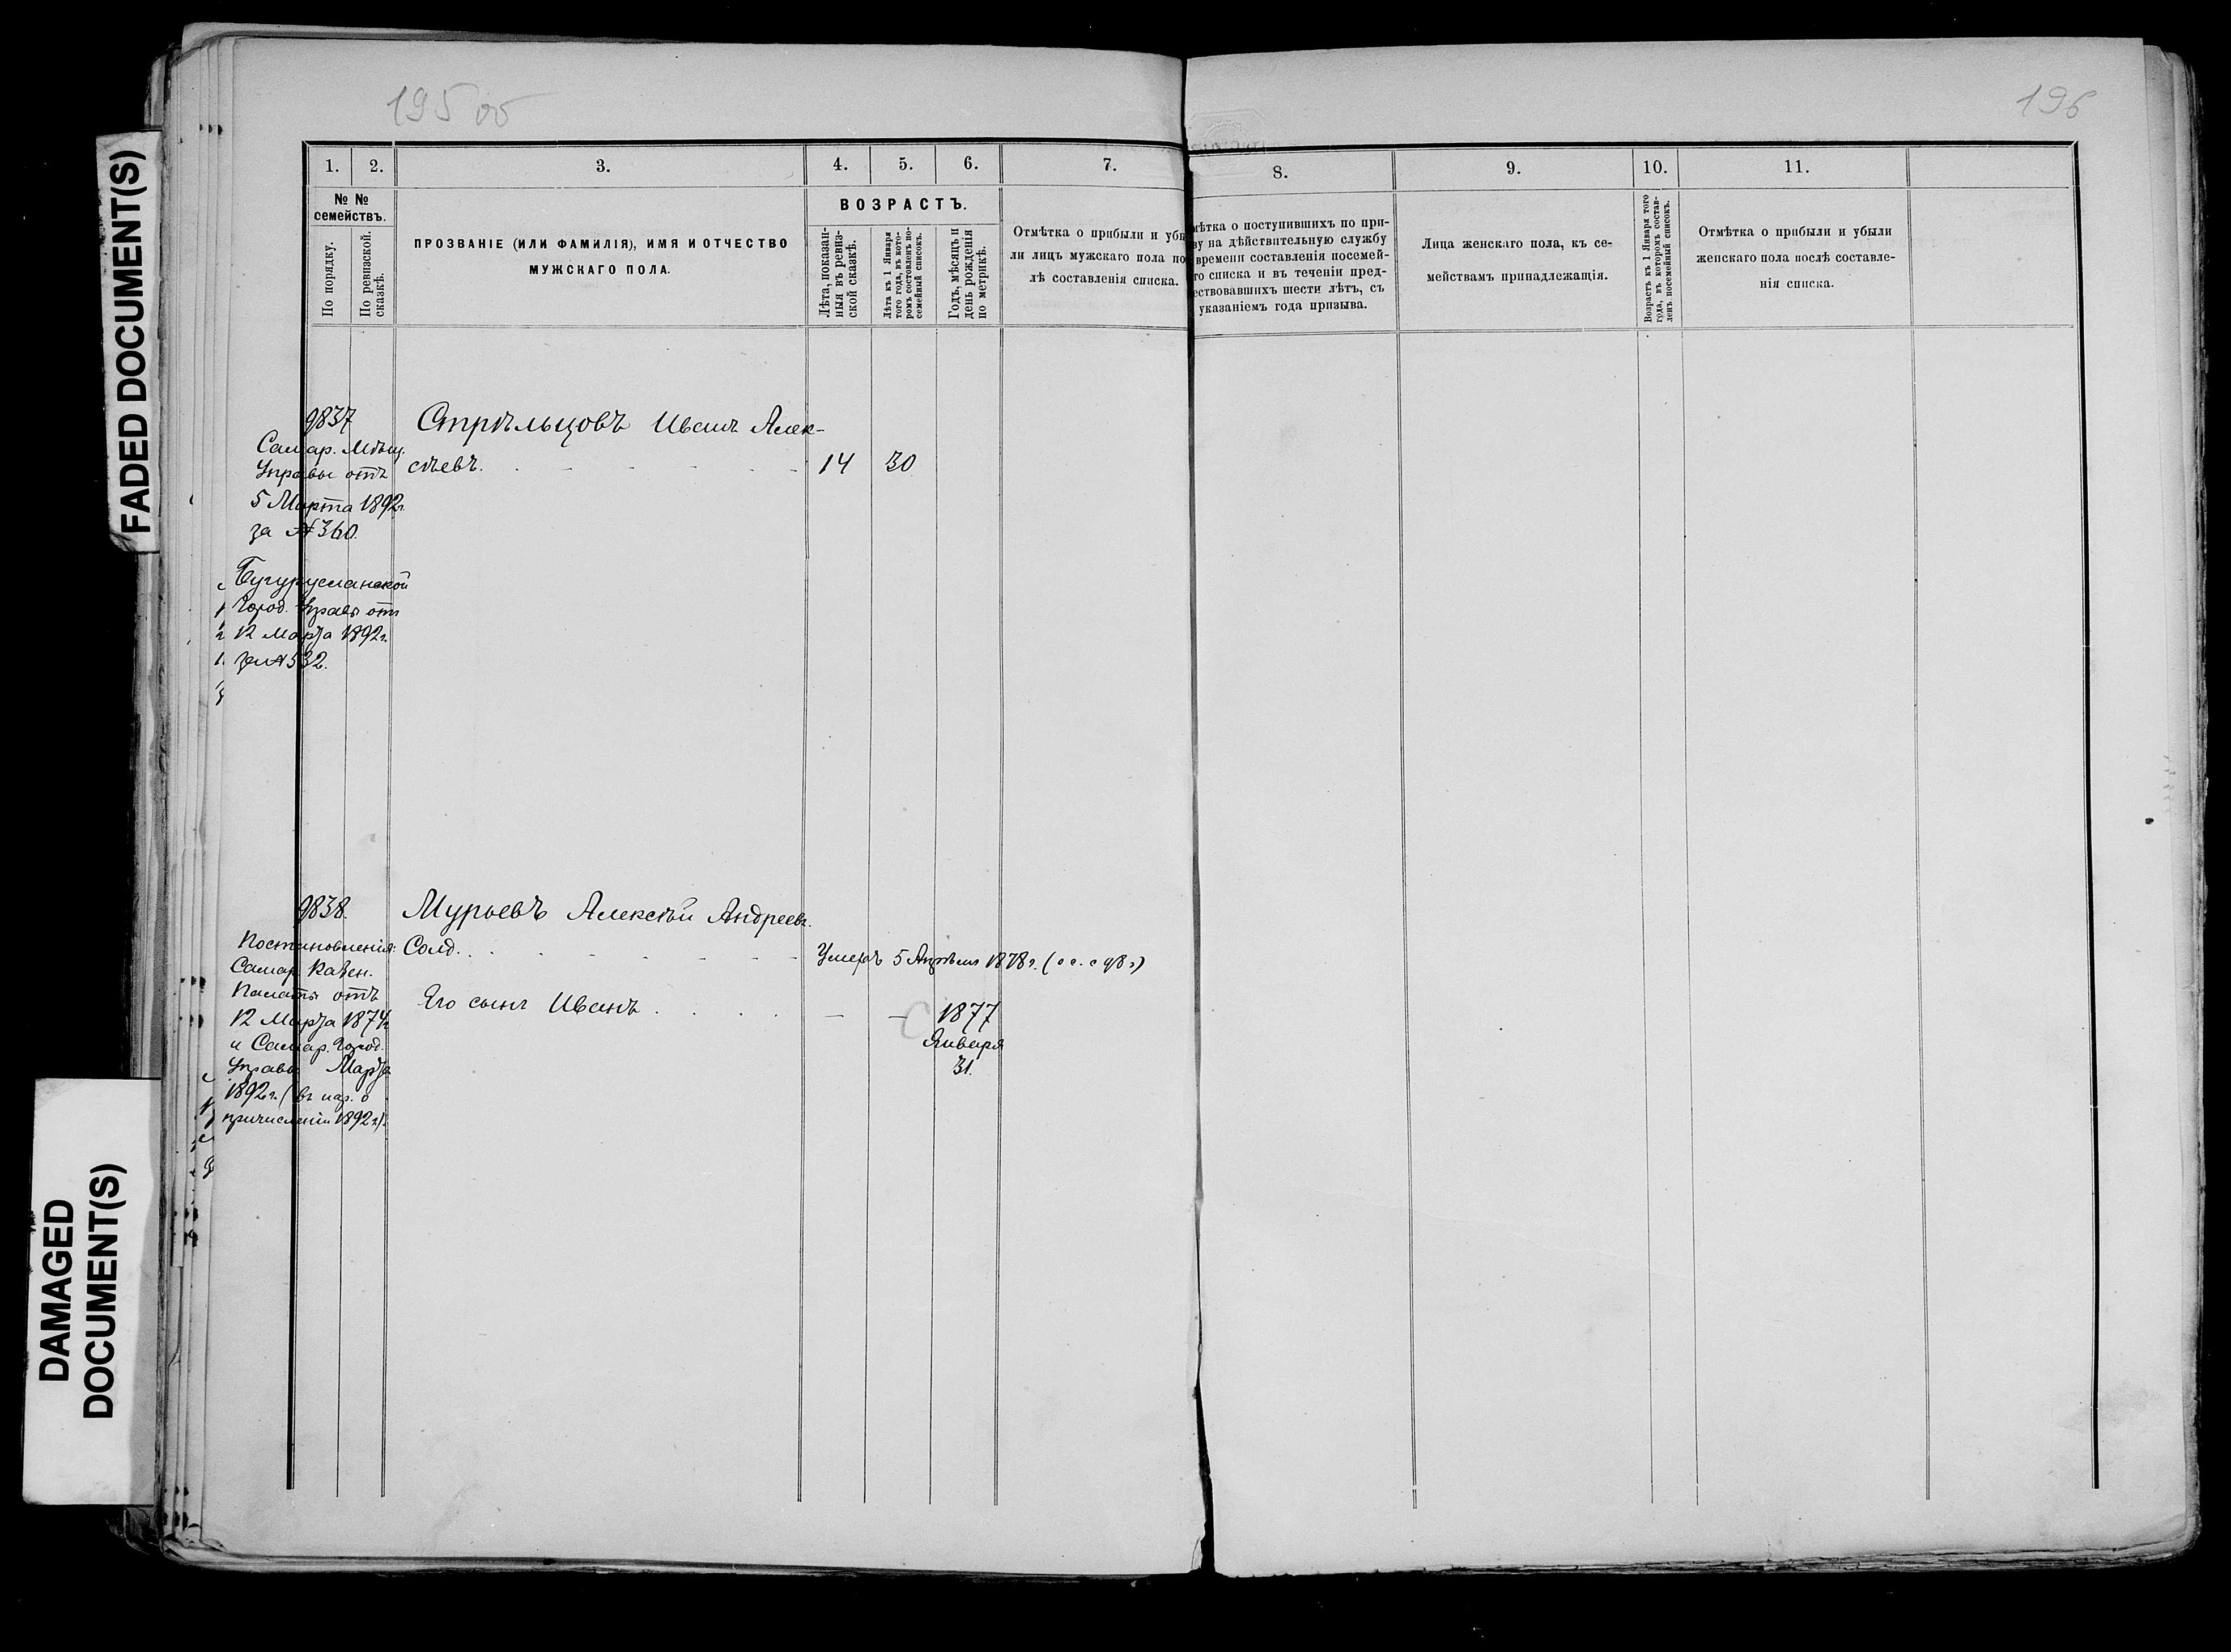 FADED DOCUMENT(S)
DAMAGED
DOCUMENT(S)
195 об
196
1. 2. 3. 4. 5. 6. 7. 8. 9. 10. 11.
№ №
семействъ.
По порядку.
По ревизской
сказкѣ.
ПРОЗВАНІЕ (ИЛИ ФАМИЛІЯ), ИМЯ И ОТЧЕСТВО
МУЖСКАГО ПОЛА.
ВОЗРАСТЪ.
Лѣта, показан-
ныя въ ревиз-
ской сказкѣ.
Лѣта къ 1 Января
того года, въ кото-
ромъ составленъ по-
семейный списокъ.
Годъ, мѣсяцъ и
день рожденія
по метрикѣ.
Отмѣтка о прибыли и убы
ли лицъ мужскаго пола по
лѣ составленія списка.
мѣтка о поступившихъ по при-
ву на дѣйствительную службу
времени составленія посемей-
го списка и въ теченіи пред-
ествовавшихъ шести лѣтъ, съ
указаніемъ года призыва.
Лица женскаго пола, къ се-
мействамъ принадлежащія.
Возрастъ къ 1 Января того
года, въ которомъ состав-
ленъ посемейный списокъ.
Отмѣтка о прибыли и убыли
женскаго пола послѣ составле-
нія списка.
9837
Самар. Мѣщ.
Управы отъ
5 Марта 1892 г.
за № 360.
Бугурусланской
Город. Управы отъ
12 Марта 1892 г.
за № 532.
Стрѣльцовъ Иванъ Алек-
сѣевъ. 14 30
9838.
Постановленія:
Самар. Казен.
Палаты отъ
12 Марта 1874 г.
и Самар. Город.
Управы Марта
1892 г. (въ нар. о
причисленіи 1892 г.).
Мурьевъ Алексѣй Андреевъ.
Солд. Умеръ 5 Апрѣля 1878 г.
Его сынъ Иванъ — — 1877
Января
31.